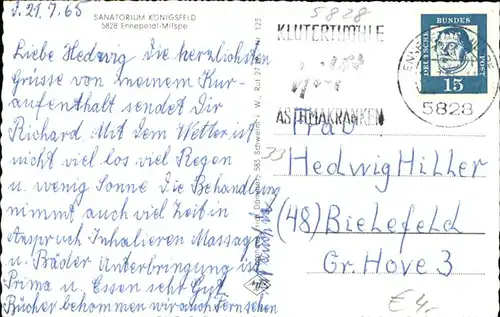 d. 21.7.65
SANATORIUM KÖNIGSFELD
5828 Ennepetal-Milspe
Liebe Hedwig die herzlichsten
Grüsse von meinem Kur-
aufenthalt sendet Dir
Richard. Mit dem Wetter ist
nicht viel los viel Regen
u. wenig Sonne Die Behandlung
nimmt auch viel Zeit in
Anspruch Inhalieren Massage
u. Bäder Unterbringung ist
Prima u. Essen sehr Gut
Bücher bekommen wir auch Fernsehen
583 Schwelm i. W., Ruf 27
125
5828
KLUTERTHÖHLE
ASTHMAKRANKEN
DEUTSCHE
BUNDES
POST
15
5828
Frau
33
Hedwig Hiller
(48) Bielefeld
Gr. Howe 3
€ 4,-